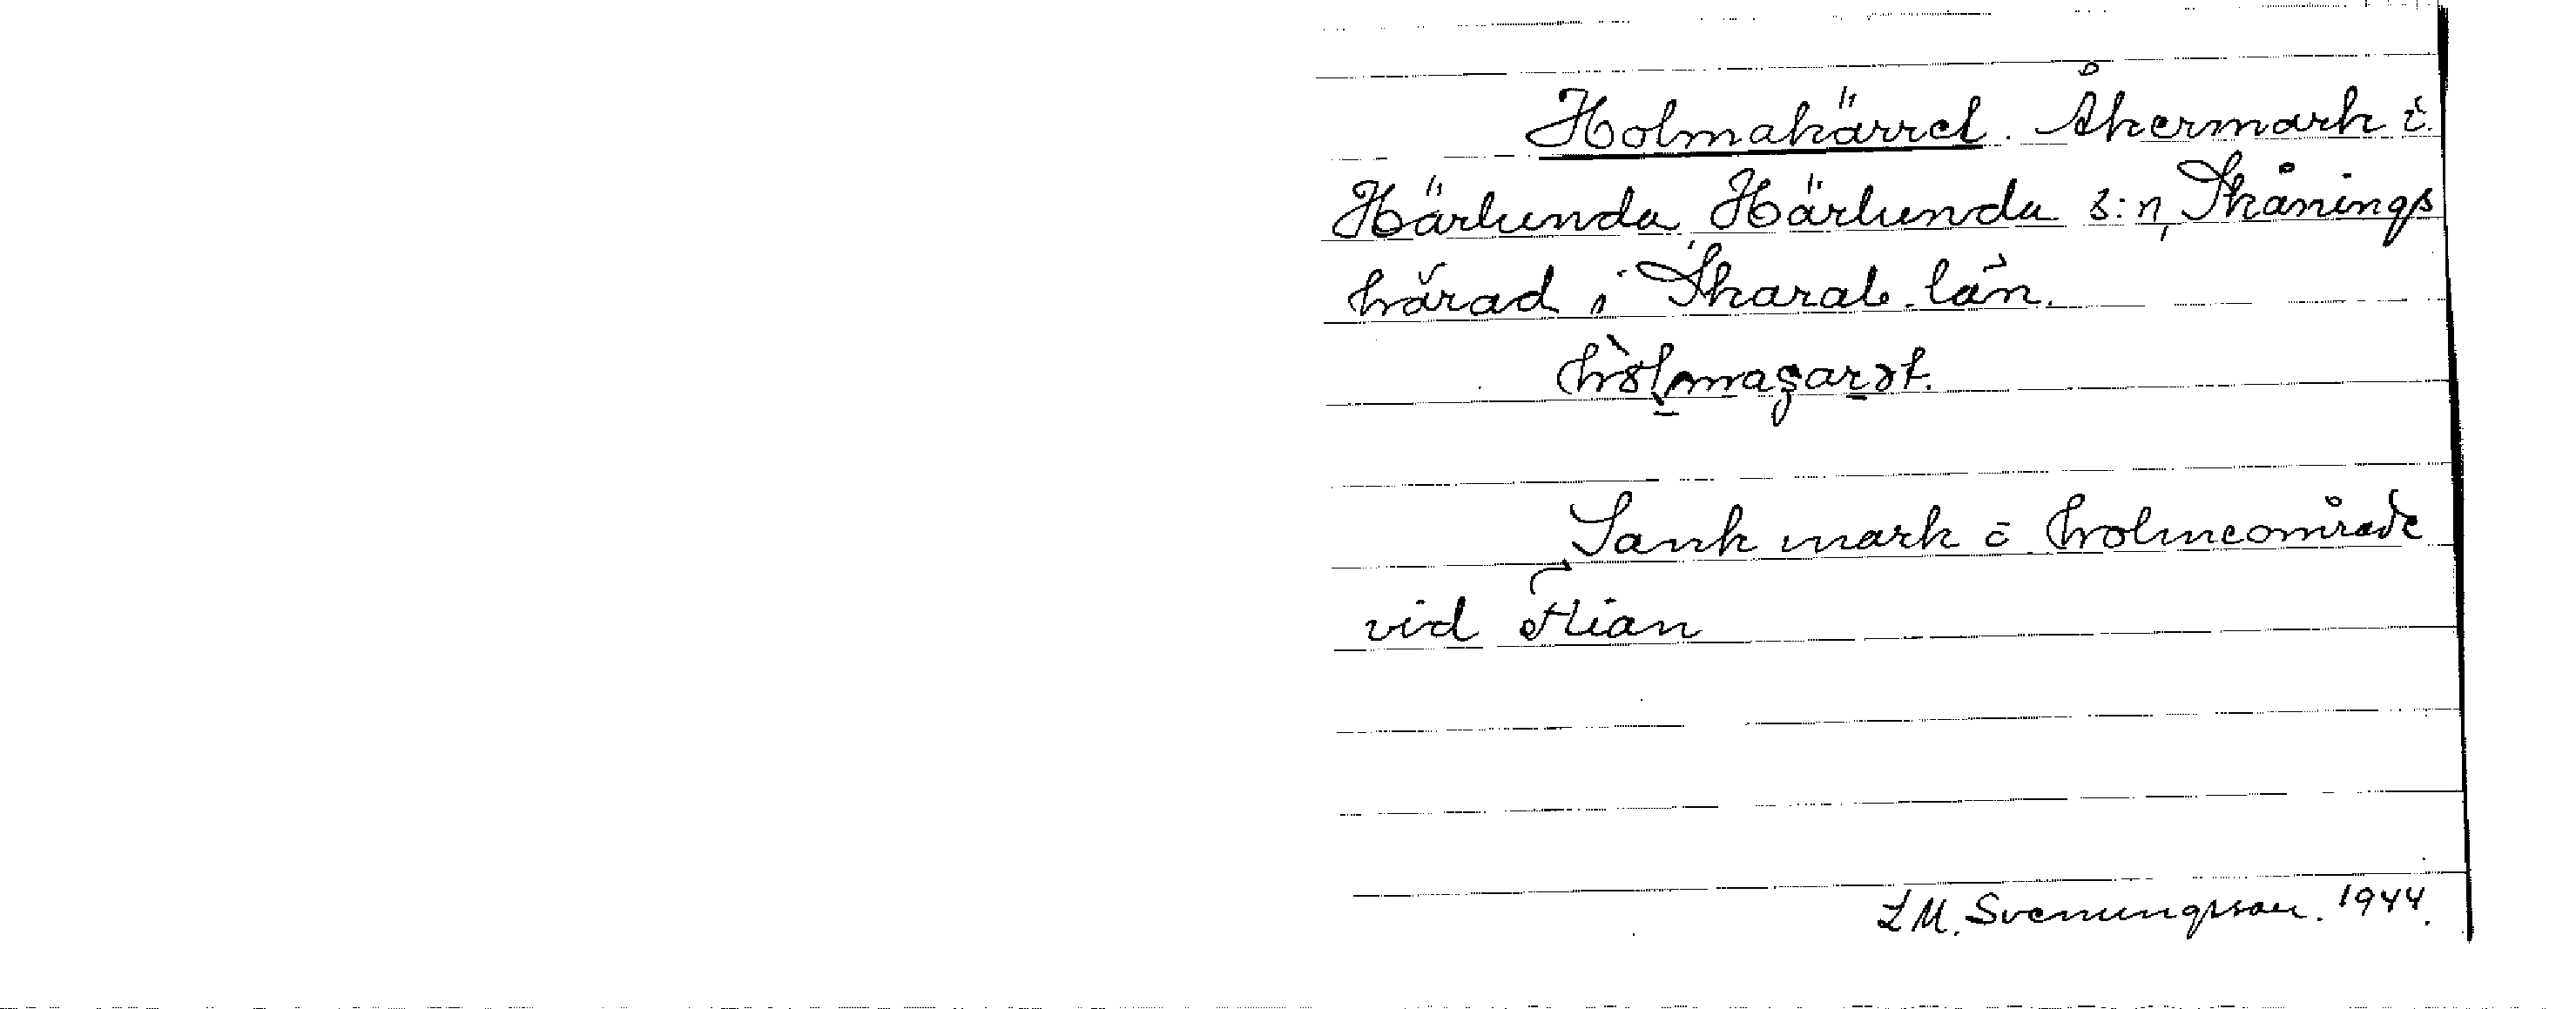 Holmakärret. Åkermark i
Härlunda, Härlunda s:n, Skånings
härad i Skarab. län.
Sank mark i holmeområde
vid Flian
L M. Svenungsson. 1944.